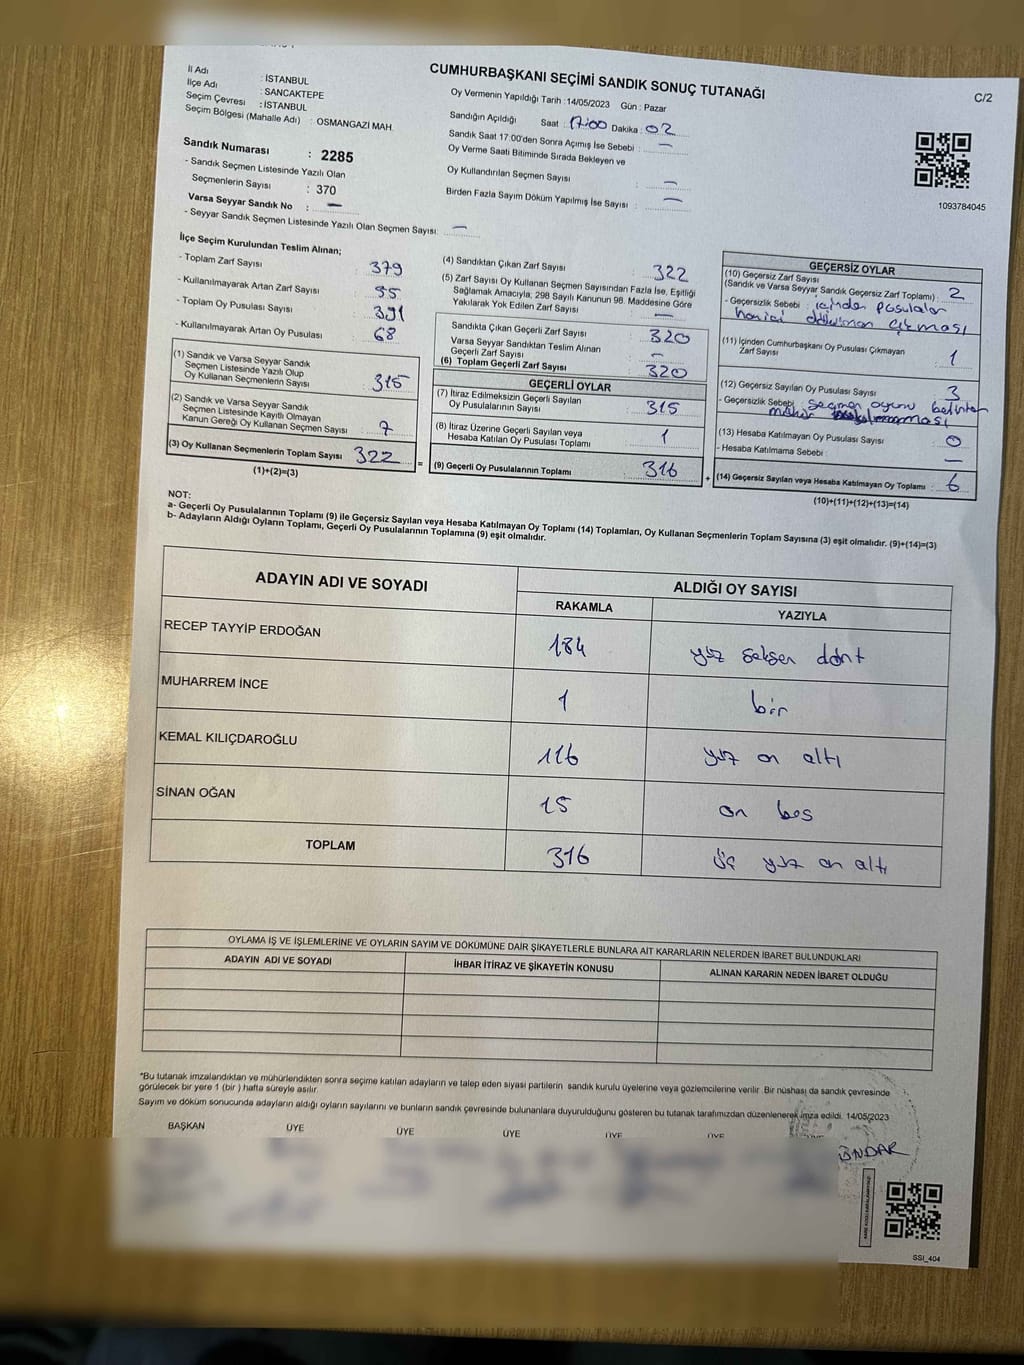 CUMHURBAŞKANI SEÇİMİ SANDIK SONUÇ TUTANAĞI
C/2
İl Adı : İSTANBUL
İlçe Adı : SANCAKTEPE
Seçim Çevresi : İSTANBUL
Seçim Bölgesi (Mahalle Adı) : OSMANGAZİ MAH.
Sandık Numarası : 2285
- Sandık Seçmen Listesinde Yazılı Olan
Seçmenlerin Sayısı : 370
Varsa Seyyar Sandık No : —
- Seyyar Sandık Seçmen Listesinde Yazılı Olan Seçmen Sayısı: —
Oy Vermenin Yapıldığı Tarih : 14/05/2023 Gün : Pazar
Sandığın Açıldığı Saat : 17:00 Dakika : 02
Sandık Saat 17.00'den Sonra Açımış İse Sebebi : —
Oy Verme Saati Bitiminde Sırada Bekleyen ve
Oy Kullandırılan Seçmen Sayısı : —
Birden Fazla Sayım Döküm Yapılmış İse Sayısı : —
1093784045
İlçe Seçim Kurulundan Teslim Alınan;
- Toplam Zarf Sayısı : 379
- Kullanılmayarak Artan Zarf Sayısı : 55
- Toplam Oy Pusulası Sayısı : 391
- Kullanılmayarak Artan Oy Pusulası : 68
(1) Sandık ve Varsa Seyyar Sandık
Seçmen Listesinde Yazılı Olup
Oy Kullanan Seçmenlerin Sayısı : 315
(2) Sandık ve Varsa Seyyar Sandık
Seçmen Listesinde Kayıtlı Olmayan
Kanun Gereği Oy Kullanan Seçmen Sayısı : 7
(3) Oy Kullanan Seçmenlerin Toplam Sayısı : 322
(1)+(2)=(3)
(4) Sandıktan Çıkan Zarf Sayısı : 322
(5) Zarf Sayısı Oy Kullanan Seçmen Sayısından Fazla İse, Eşitliği
Sağlamak Amacıyla, 298 Sayılı Kanunun 98. Maddesine Göre
Yakılarak Yok Edilen Zarf Sayısı : —
Sandıkta Çıkan Geçerli Zarf Sayısı : 320
Varsa Seyyar Sandıktan Teslim Alınan
Geçerli Zarf Sayısı : —
(6) Toplam Geçerli Zarf Sayısı : 320
GEÇERLİ OYLAR
(7) İtiraz Edilmeksizin Geçerli Sayılan
Oy Pusulalarının Sayısı : 315
(8) İtiraz Üzerine Geçerli Sayılan veya
Hesaba Katılan Oy Pusulası Toplamı : 1
= (9) Geçerli Oy Pusulalarının Toplamı : 316
GEÇERSİZ OYLAR
(10) Geçersiz Zarf Sayısı
(Sandık ve Varsa Seyyar Sandık Geçersiz Zarf Toplamı) : 2
- Geçersizlik Sebebi : içinden pusulalar
harici döküman çıkması
(11) İçinden Cumhurbaşkanı Oy Pusulası Çıkmayan
Zarf Sayısı : 1
(12) Geçersiz Sayılan Oy Pusulası Sayısı : 3
- Geçersizlik Sebebi : seçmen oyunu belirten
mühür
(13) Hesaba Katılmayan Oy Pusulası Sayısı : 0
- Hesaba Katılmama Sebebi : —
+ (14) Geçersiz Sayılan veya Hesaba Katılmayan Oy Toplamı : 6
(10)+(11)+(12)+(13)=(14)
NOT:
a- Geçerli Oy Pusulalarının Toplamı (9) ile Geçersiz Sayılan veya Hesaba Katılmayan Oy Toplamı (14) Toplamları, Oy Kullanan Seçmenlerin Toplam Sayısına (3) eşit olmalıdır. (9)+(14)=(3)
b- Adayların Aldığı Oyların Toplamı, Geçerli Oy Pusulalarının Toplamına (9) eşit olmalıdır.
ADAYIN ADI VE SOYADI ALDIĞI OY SAYISI
RAKAMLA YAZIYLA
RECEP TAYYİP ERDOĞAN 184 yüz seksen dört
MUHARREM İNCE 1 bir
KEMAL KILIÇDAROĞLU 116 yüz on altı
SİNAN OĞAN 15 on beş
TOPLAM 316 üç yüz on altı
OYLAMA İŞ VE İŞLEMLERİNE VE OYLARIN SAYIM VE DÖKÜMÜNE DAİR ŞİKAYETLERLE BUNLARA AİT KARARLARIN NELERDEN İBARET BULUNDUKLARI
ADAYIN ADI VE SOYADI İHBAR İTİRAZ VE ŞİKAYETİN KONUSU ALINAN KARARIN NEDEN İBARET OLDUĞU
*Bu tutanak imzalandıktan ve mühürlendikten sonra seçime katılan adayların ve talep eden siyasi partilerin sandık kurulu üyelerine veya gözlemcilerine verilir. Bir nüshası da sandık çevresinde
görülecek bir yere 1 (bir ) hafta süreyle asılır.
Sayım ve döküm sonucunda adayların aldığı oyların sayılarını ve bunların sandık çevresinde bulunanlara duyurulduğunu gösteren bu tutanak tarafımızdan düzenlenerek imza edildi. 14/05/2023
BAŞKAN ÜYE ÜYE ÜYE ÜYE ÜYE
ÖNDAR
SSI_404